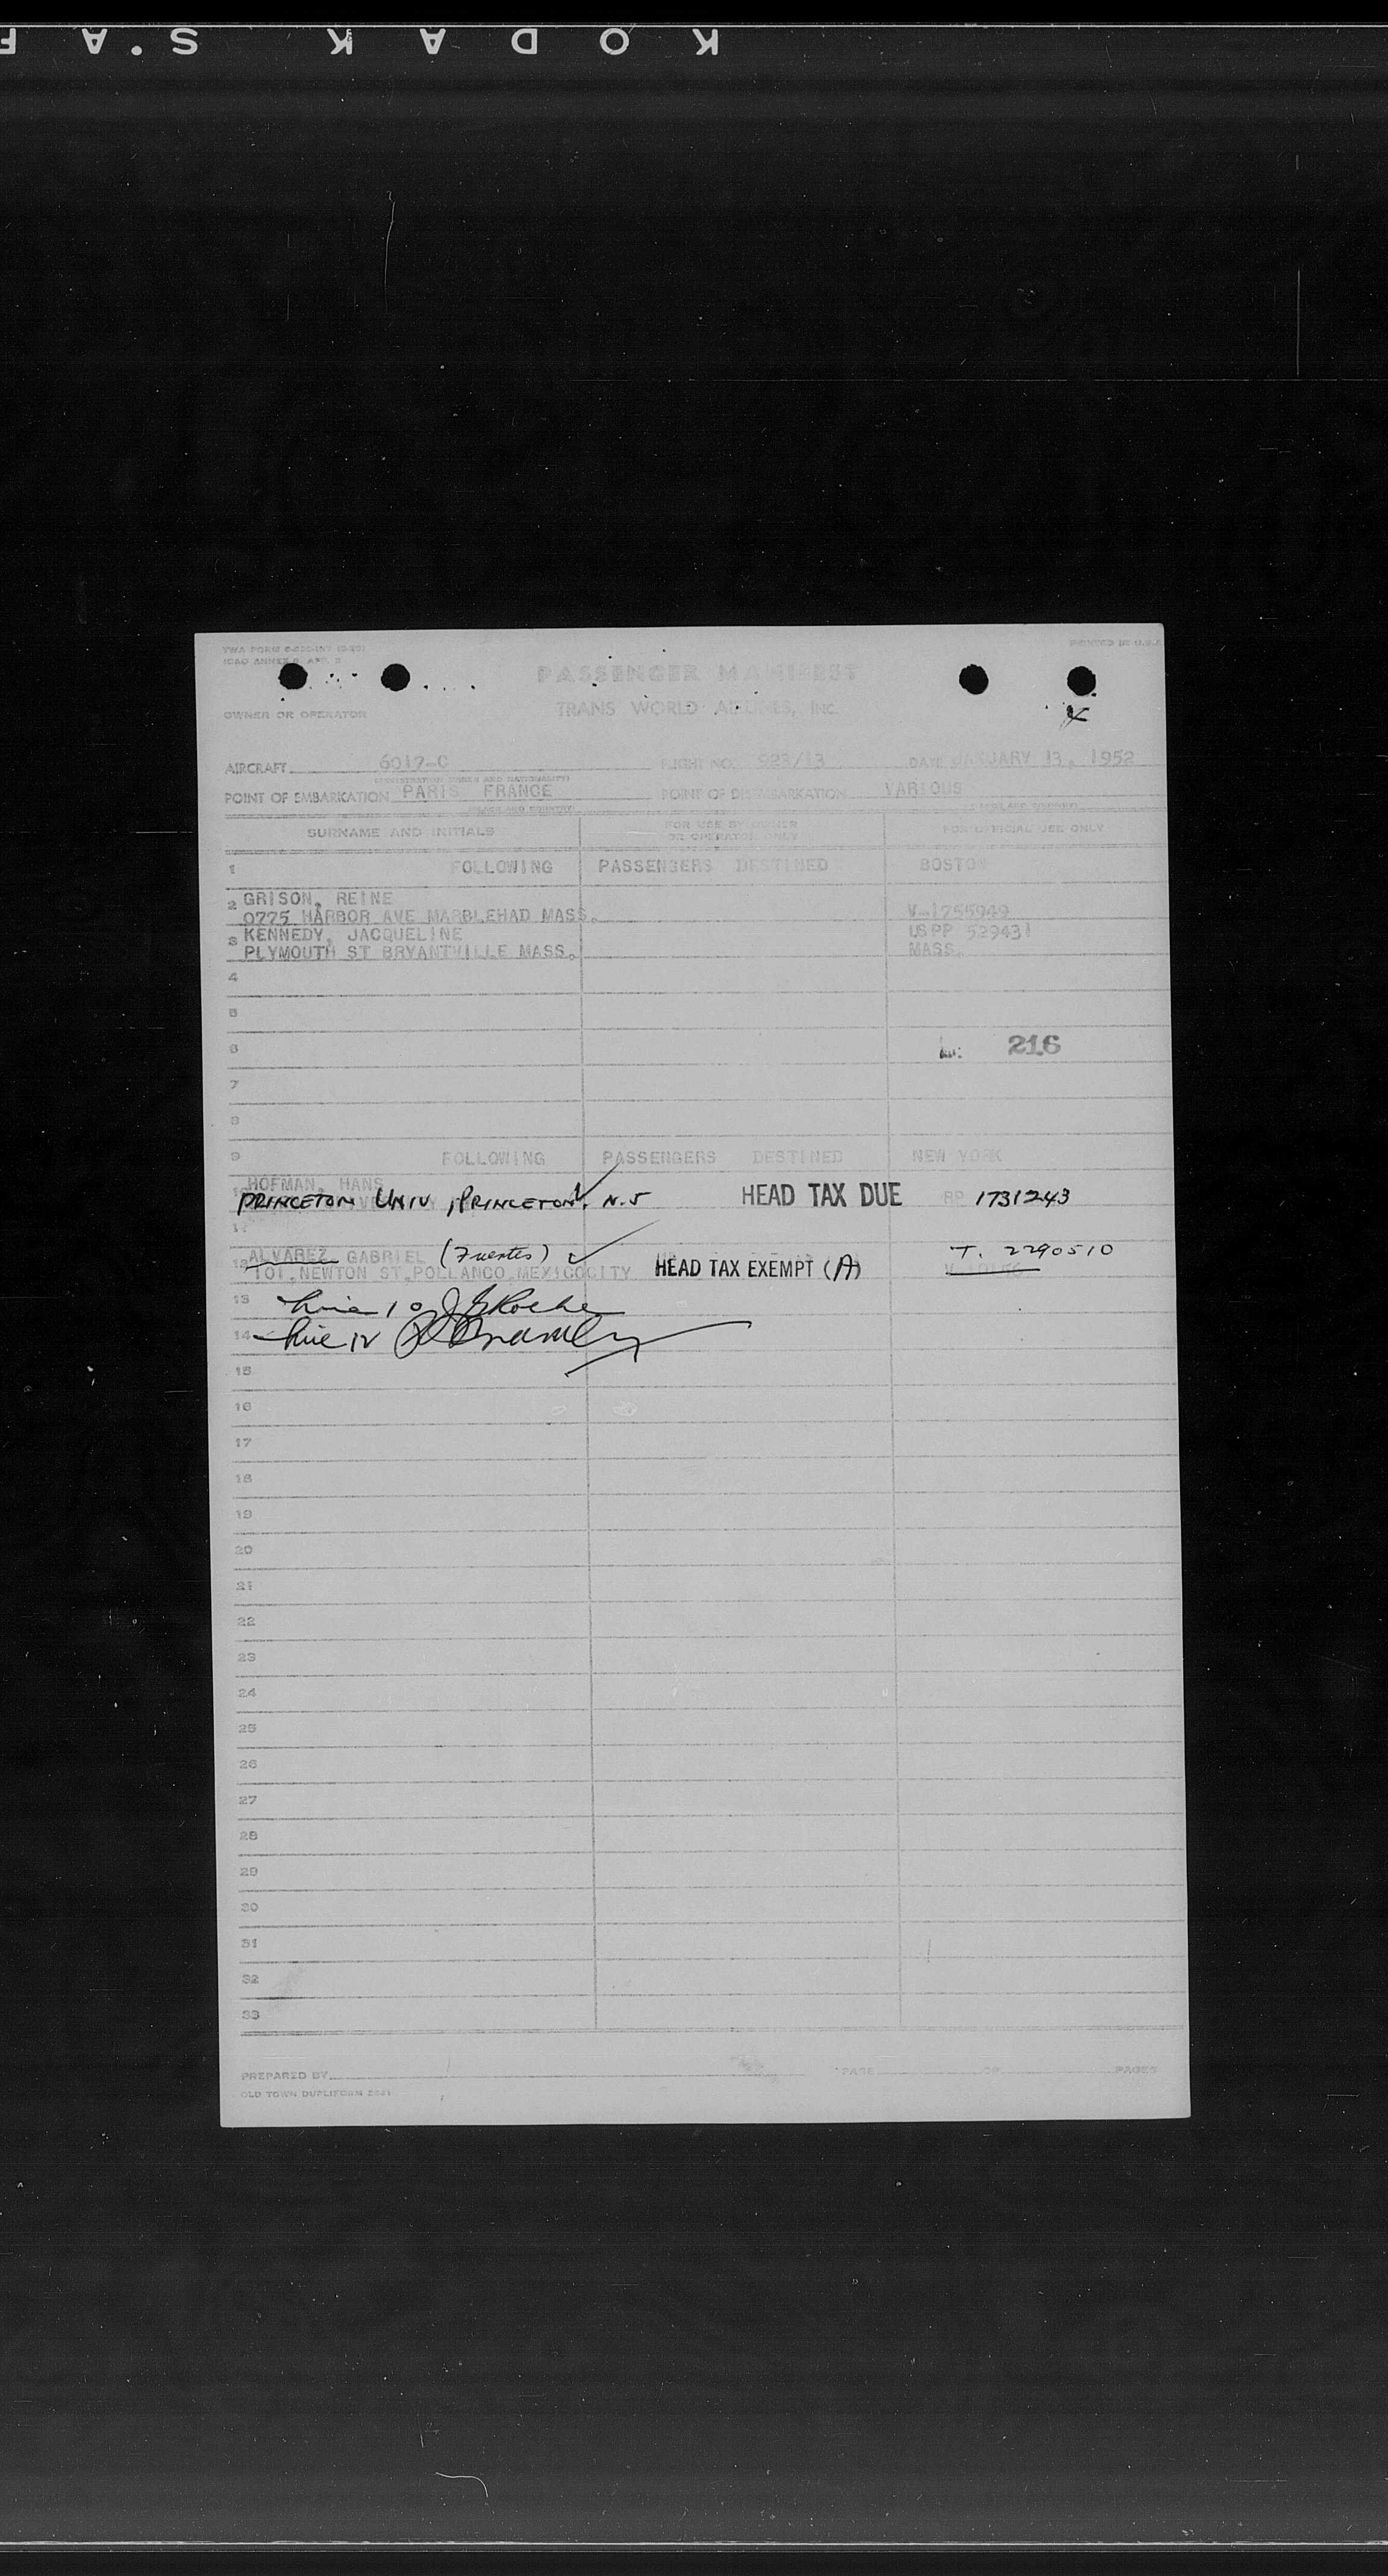 KODAK S.A F
TWA FORM
ICAO ANNEX 9 APP. 3
PRINTED IN U.S.A
PASSENGER MANIFEST
TRANS WORLD AIRLINES, INC.
OWNER OR OPERATOR
AIRCRAFT 6017-C FLIGHT NO. 923/13 DATE JANUARY 13, 1952
(REGISTRATION MARKS AND NATIONALITY)
POINT OF EMBARKATION PARIS FRANCE POINT OF DISEMBARKATION VARIOUS
(PLACE AND COUNTRY) (PLACE AND COUNTRY)
SURNAME AND INITIALS FOR USE BY OWNER OR OPERATOR ONLY FOR OFFICIAL USE ONLY
1 FOLLOWING PASSENGERS DESTINED BOSTON
2 GRISON, REINE
0775 HARBOR AVE MARBLEHAD MASS. V-1755949
3 KENNEDY, JACQUELINE USPP 529431
PLYMOUTH ST BRYANTVILLE MASS. MASS.
4
5
6 216
7
8
9 FOLLOWING PASSENGERS DESTINED NEW YORK
HOFMAN, HANS
10 PRINCETON UNIV, PRINCETON, N.J HEAD TAX DUE RP 1731243
11
12 ALVAREZ GABRIEL (Fuentes) T. 2290510
101 NEWTON ST. POLLANCO MEXICOCITY HEAD TAX EXEMPT (A)
13 Line 10
14 Line 12
15
16
17
18
19
20
21
22
23
24
25
26
27
28
29
30
31
32
33
PREPARED BY PAGE OF PAGES
OLD TOWN DUPLIFORM